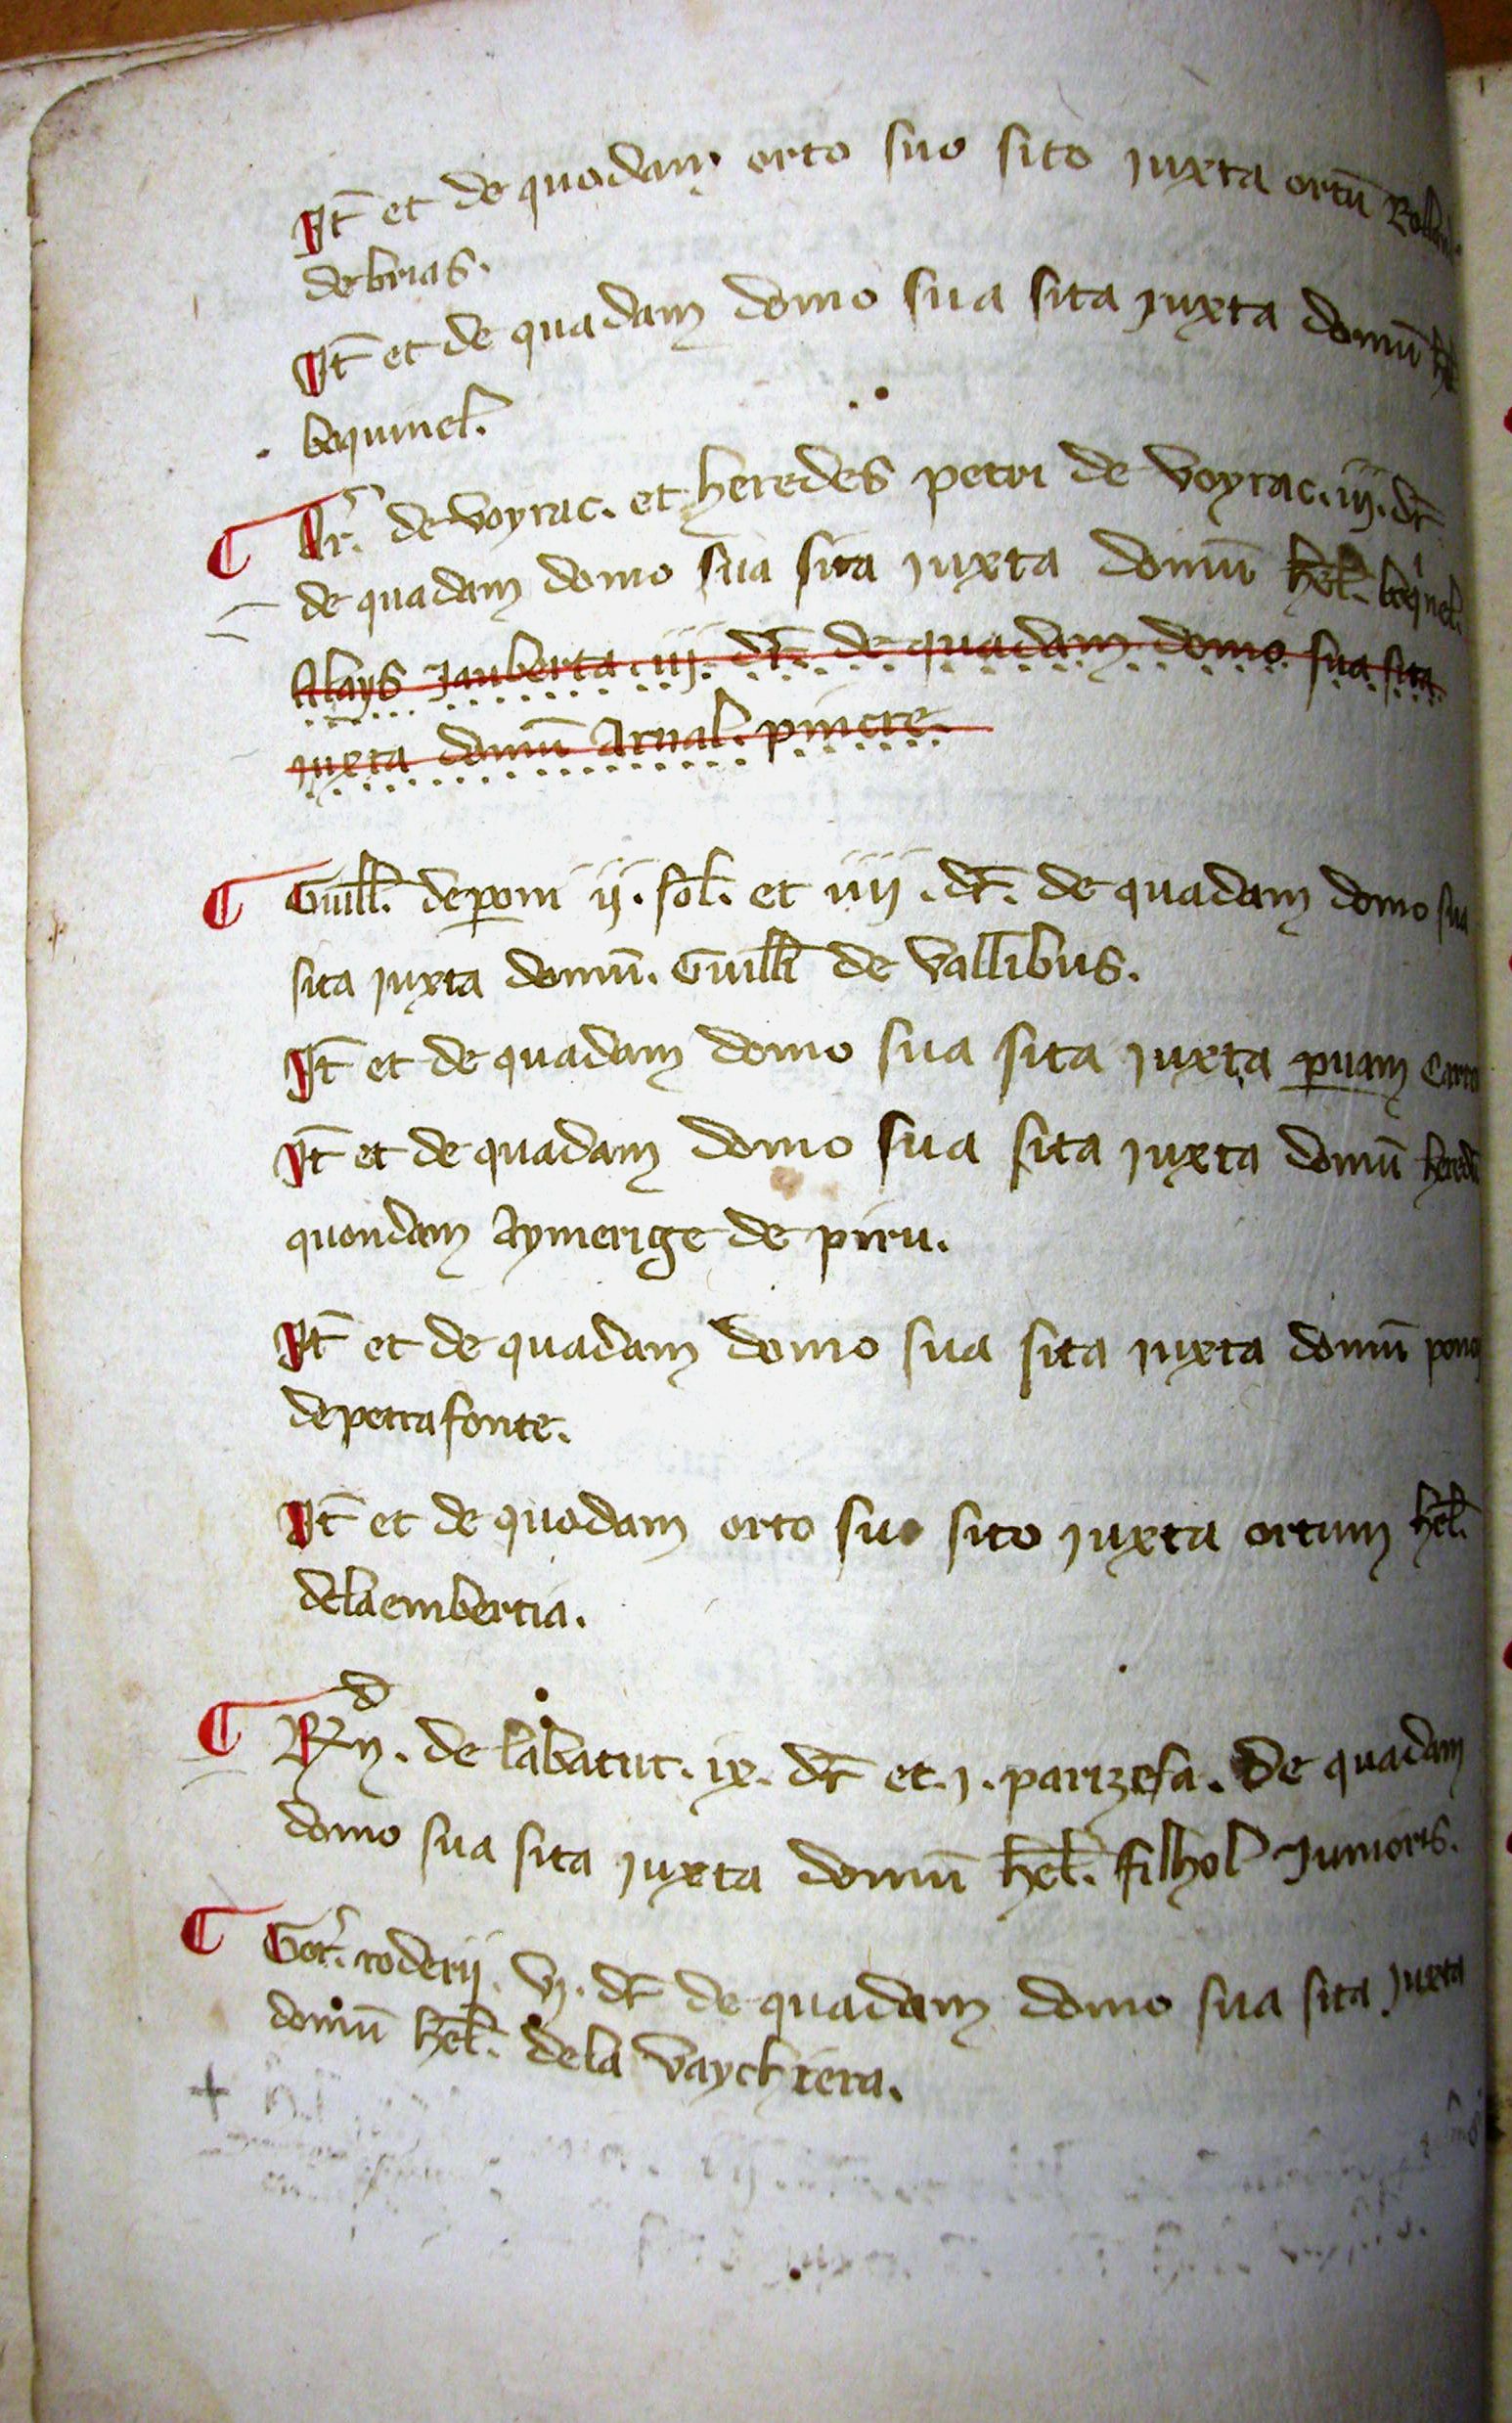 It̄ et de quodam orto suo sito iuxta ortū
de brias.
It̄ et de quadam domo sua sita iuxta domū
bequinel̄.
¶ de voyrac. et heredes petri de voyrac. iij. dr̄
de quadam domo sua sita iuxta domū hēl. beqⁱnel.
Alays Iauberta. iij. dr̄. de quadam domo sua sita
iuxta domū Arnal̄. pincre.
¶ Guill̄. deponi ij. sol̄. et iiij. dr̄. de quadam domo sua
sita iuxta domū. Guill̄i de vallibus.
It̄ et de quadam domo sua sita iuxta ꝑuam
It̄ et de quadam domo sua sita iuxta domū
quondam Aymerige de piru.
It̄ et de quadam domo sua sita iuxta domū
de petrafonte.
It̄ et de quodam orto suo sito iuxta ortum hēl.
delaembertia.
¶ de labatut. ix. dr̄ et. i. parizesa. De quadam
domo sua sita iuxta domū hēl. filhol Iunioris.
¶ roderij. vi. dr̄ de quadam domo sua sita iuxta
domū hēl. dela vayctriera.